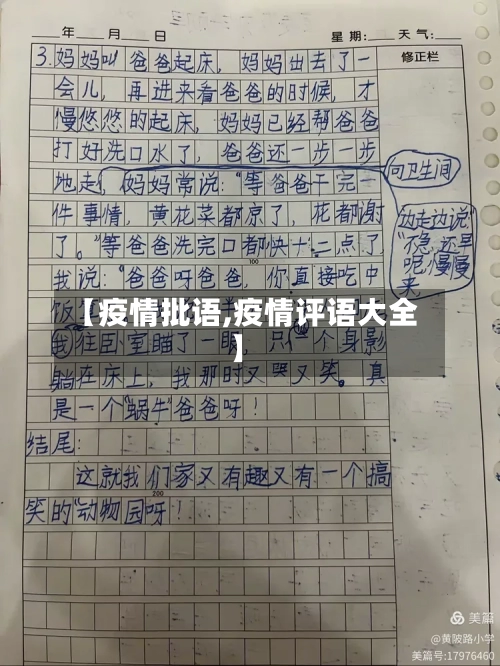 ___年___月___日 星期:___ 天气:___
修正栏
3.妈妈叫爸爸起床,妈妈出去了一
会儿,再进来看爸爸的时候,才
慢悠悠的起床,妈妈已经帮爸爸
打好洗口水了,爸爸还一步一步
向卫生间
地走,妈妈常说:“等爸爸干完一
件事情,黄花菜都凉了,花都谢
了。”等爸爸洗完口都快十二点了
边走边说
“不急,还早
呢,慢慢
来
我说:“爸爸呀爸爸,你直接吃中
饭
【疫情批语,疫情评语大全
】
我往卧室瞄了一眼,只 个身影
躺在床上,我那时又哭又笑。真
是一个“蜗牛”爸爸呀!
结尾:
这就我们家又有趣又有一个搞
笑的“动物园呀!
100
200
美篇
@黄陂路小学
美篇号:17976460